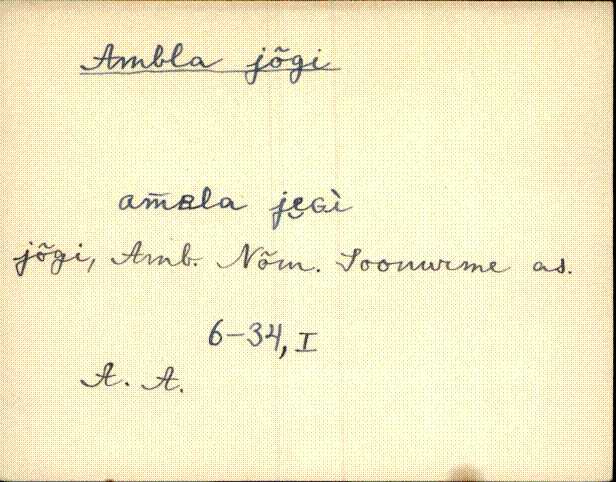 Ambla jõgi
am̄ʙla je̮ɢì
jõgi, Amb. Nõm. Soonurme as.
6-34, I
A. A.